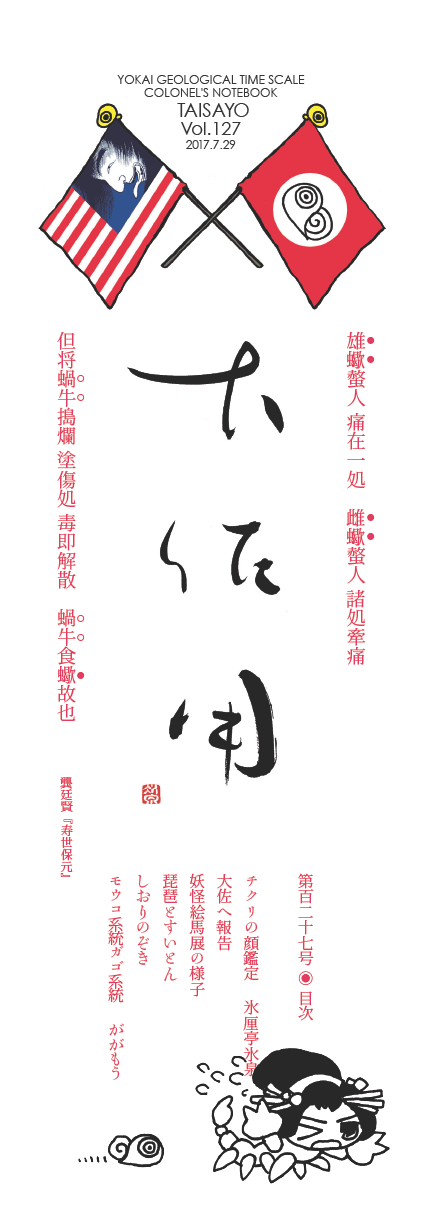 YOKAI GEOLOGICAL TIME SCALE
COLONEL'S NOTEBOOK
TAISAYO
Vol.127
2017.7.29
雄蠍螫人 痛在一処 雌蠍螫人 諸処牽痛
大佐用
但将蝸牛搗爛 塗傷処 毒即解散 蝸牛食蠍故也
龔廷賢『寿世保元』
第百二十七号◉目次
チクリの顔鑑定 氷厘亭氷泉
大佐へ報告
妖怪絵馬展の様子
琵琶とすいとん
しおりのぞき
モウコ系統ガゴ系統 ががもう